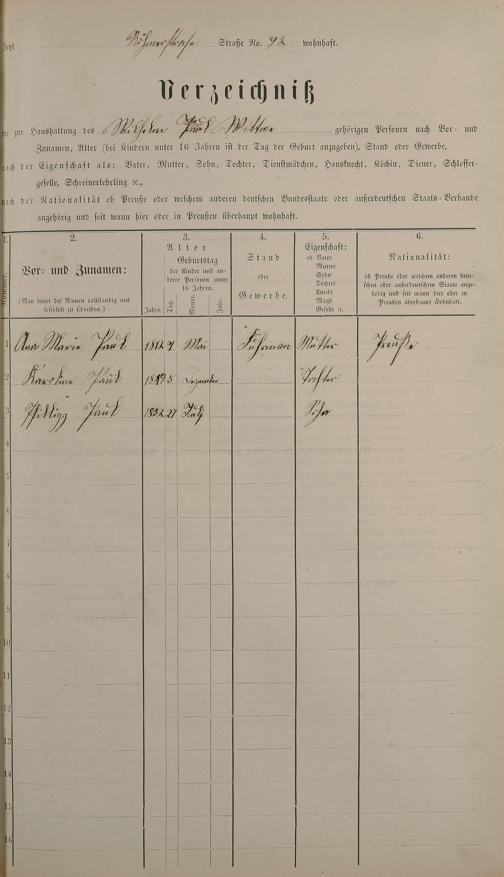 Jetzt Römerstrasse Straße No. 42 wohnhaft.
Verzeichniß
der zur Haushaltung des Wilhelm Wittwe gehörigen Personen nach Vor- und
Zunamen, Alter (bei Kindern unter 16 Jahren ist der Tag der Geburt anzugeben), Stand oder Gewerbe,
nach der Eigenschaft als: Vater, Mutter, Sohn, Tochter, Dienstmädchen, Hausknecht, Köchin, Diener, Schlosser-
geselle, Schreinerlehrling ꝛc.,
nach der Nationalität ob Preuße oder welchem anderen deutschen Bundesstaate oder außerdeutschen Staats-Verbande
angehörig und seit wann hier oder in Preußen überhaupt wohnhaft.
1. 2. 3. 4. 5. 6.
Nummer.
Vor- und Zunamen:
(Man bittet die Namen vollständig und
leserlich zu schreiben.)
Alter
Geburtstag
der Kinder und an-
derer Personen unter
16 Jahren.
Jahre. Tag. Monat. Jahr.
Stand
oder
Gewerbe.
Eigenschaft:
ob Vater
Mutter
Sohn
Tochter
Köchin
Knecht
Magd
Geselle ꝛc.
Nationalität:
ob Preuße oder welchem anderen deut-
schen oder außerdeutschen Staate ange-
hörig und seit wann hier oder in
Preußen überhaupt wohnhaft.
1 Ana Marie 1812 7 Mai Fuhrman Mutter Preuße
2 Karoline 5 Dezember Tochter
3 Philipp 1852 27 Sohn
4
5
6
7
8
9
10
11
12
13
14
15
16